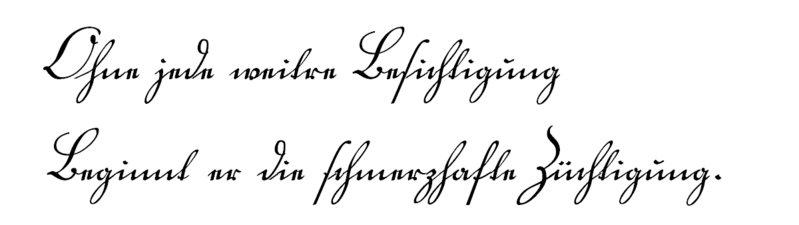 Ohne jede weitre Besichtigung
Beginnt er die schmerzhafte Züchtigung.